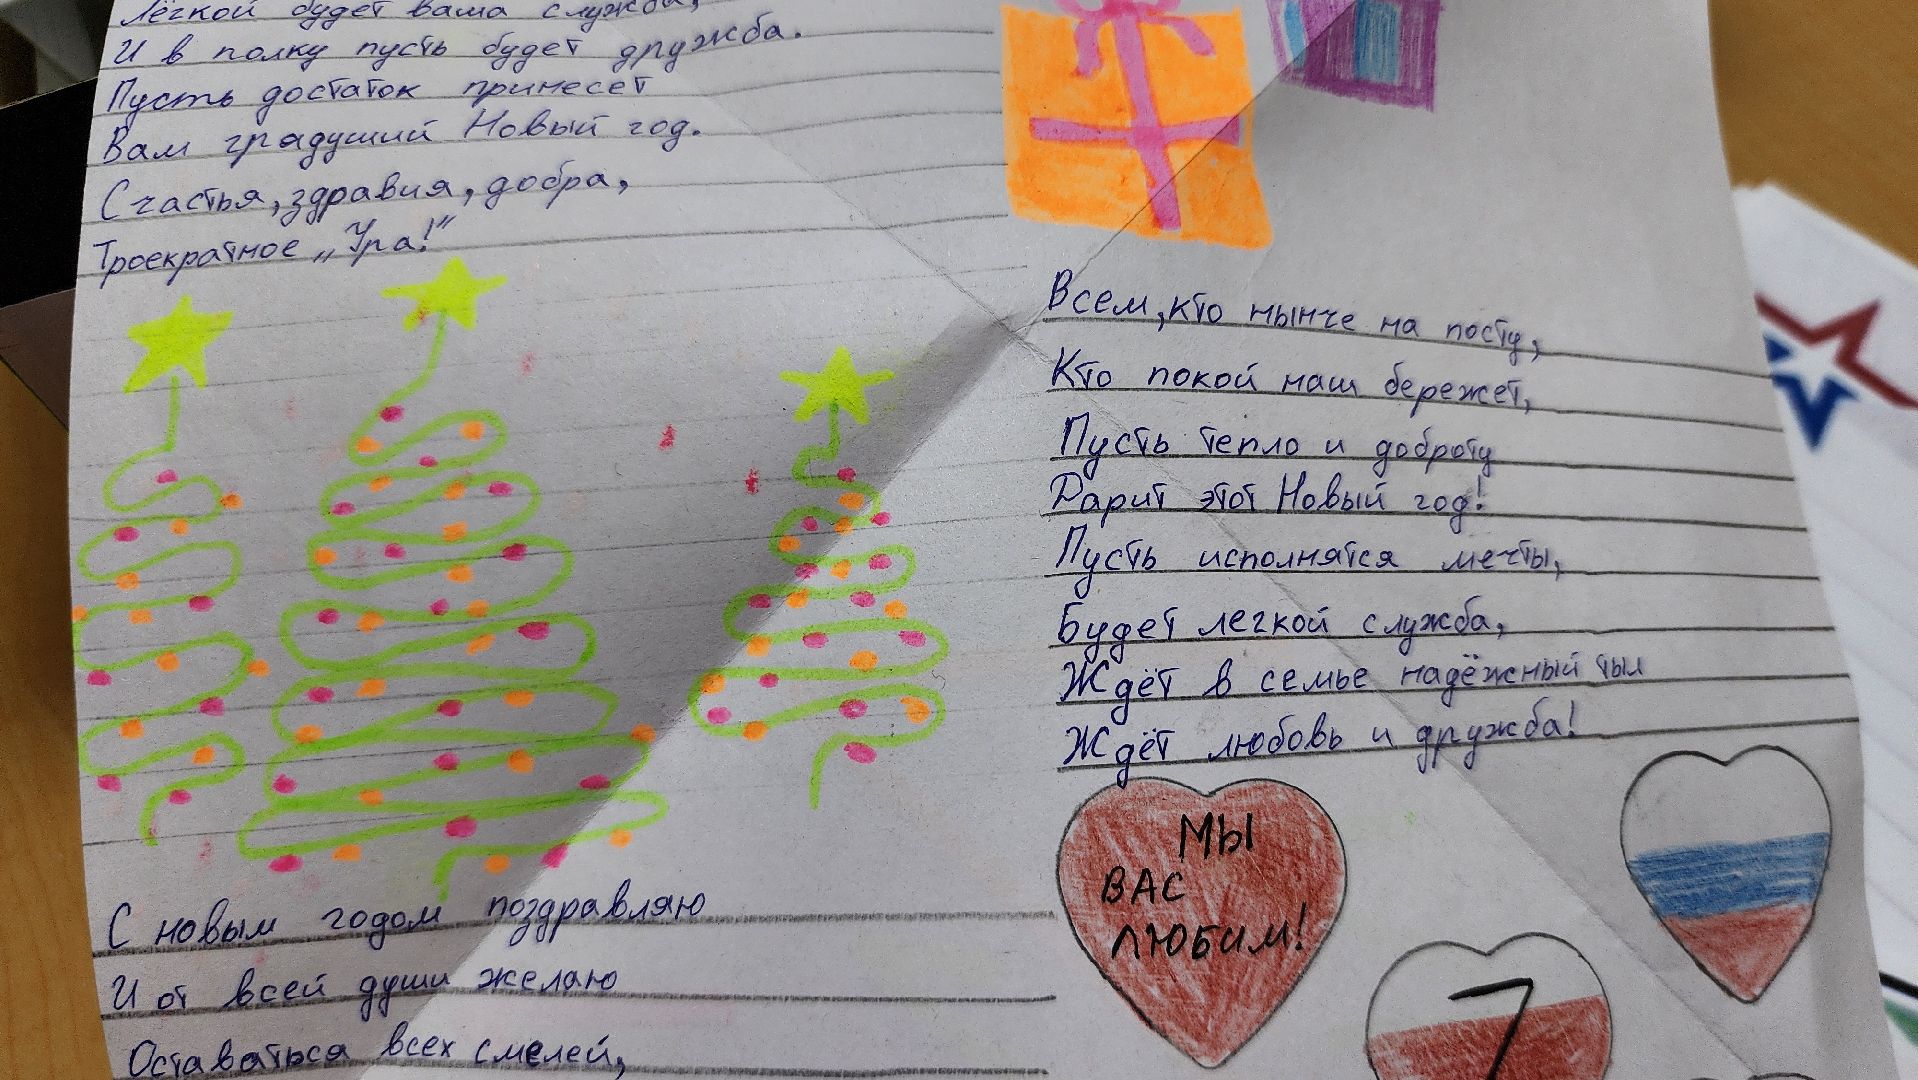 Лёгкой будет ваша служба,
И в полку пусть будет дружба.
Пусть достаток принесет
Вам градуший Новый год.
Счастья, здравия, добра,
Троекратное „Ура!"
С новым годом поздравляю
И от всей души желаю
Оставаться всех смелей,
Всем, кто нынче на посту,
Кто покой наш бережет,
Пусть тепло и доброту
Дарит этот Новый год!
Пусть исполнятся мечты,
Будет легкой служба,
Ждёт в семье надёжный тыл
Ждёт любовь и дружба!
МЫ
ВАС
ЛЮБИМ!
7